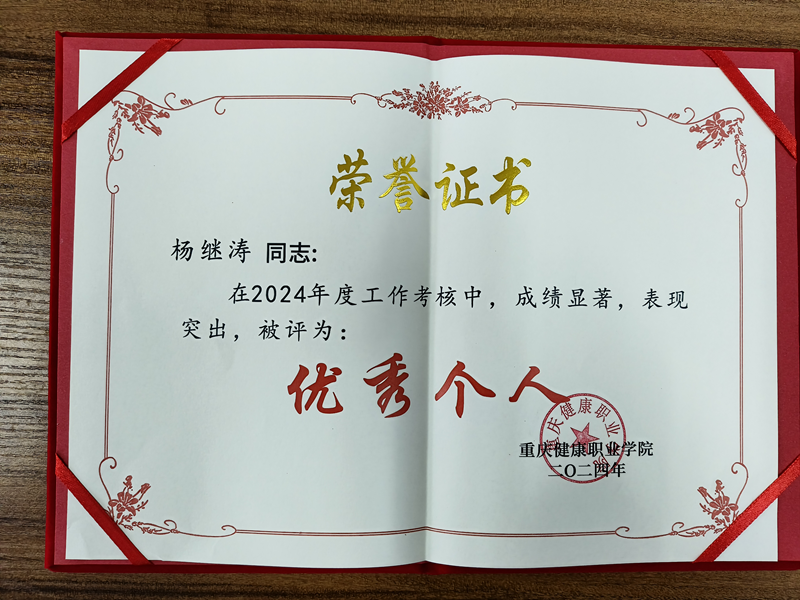 荣誉证书
杨继涛 同志:
在2024年度工作考核中，成绩显著，表现
突出，被评为：
优秀个人
重庆健康职业学院
重庆健康职业学院
二〇二四年